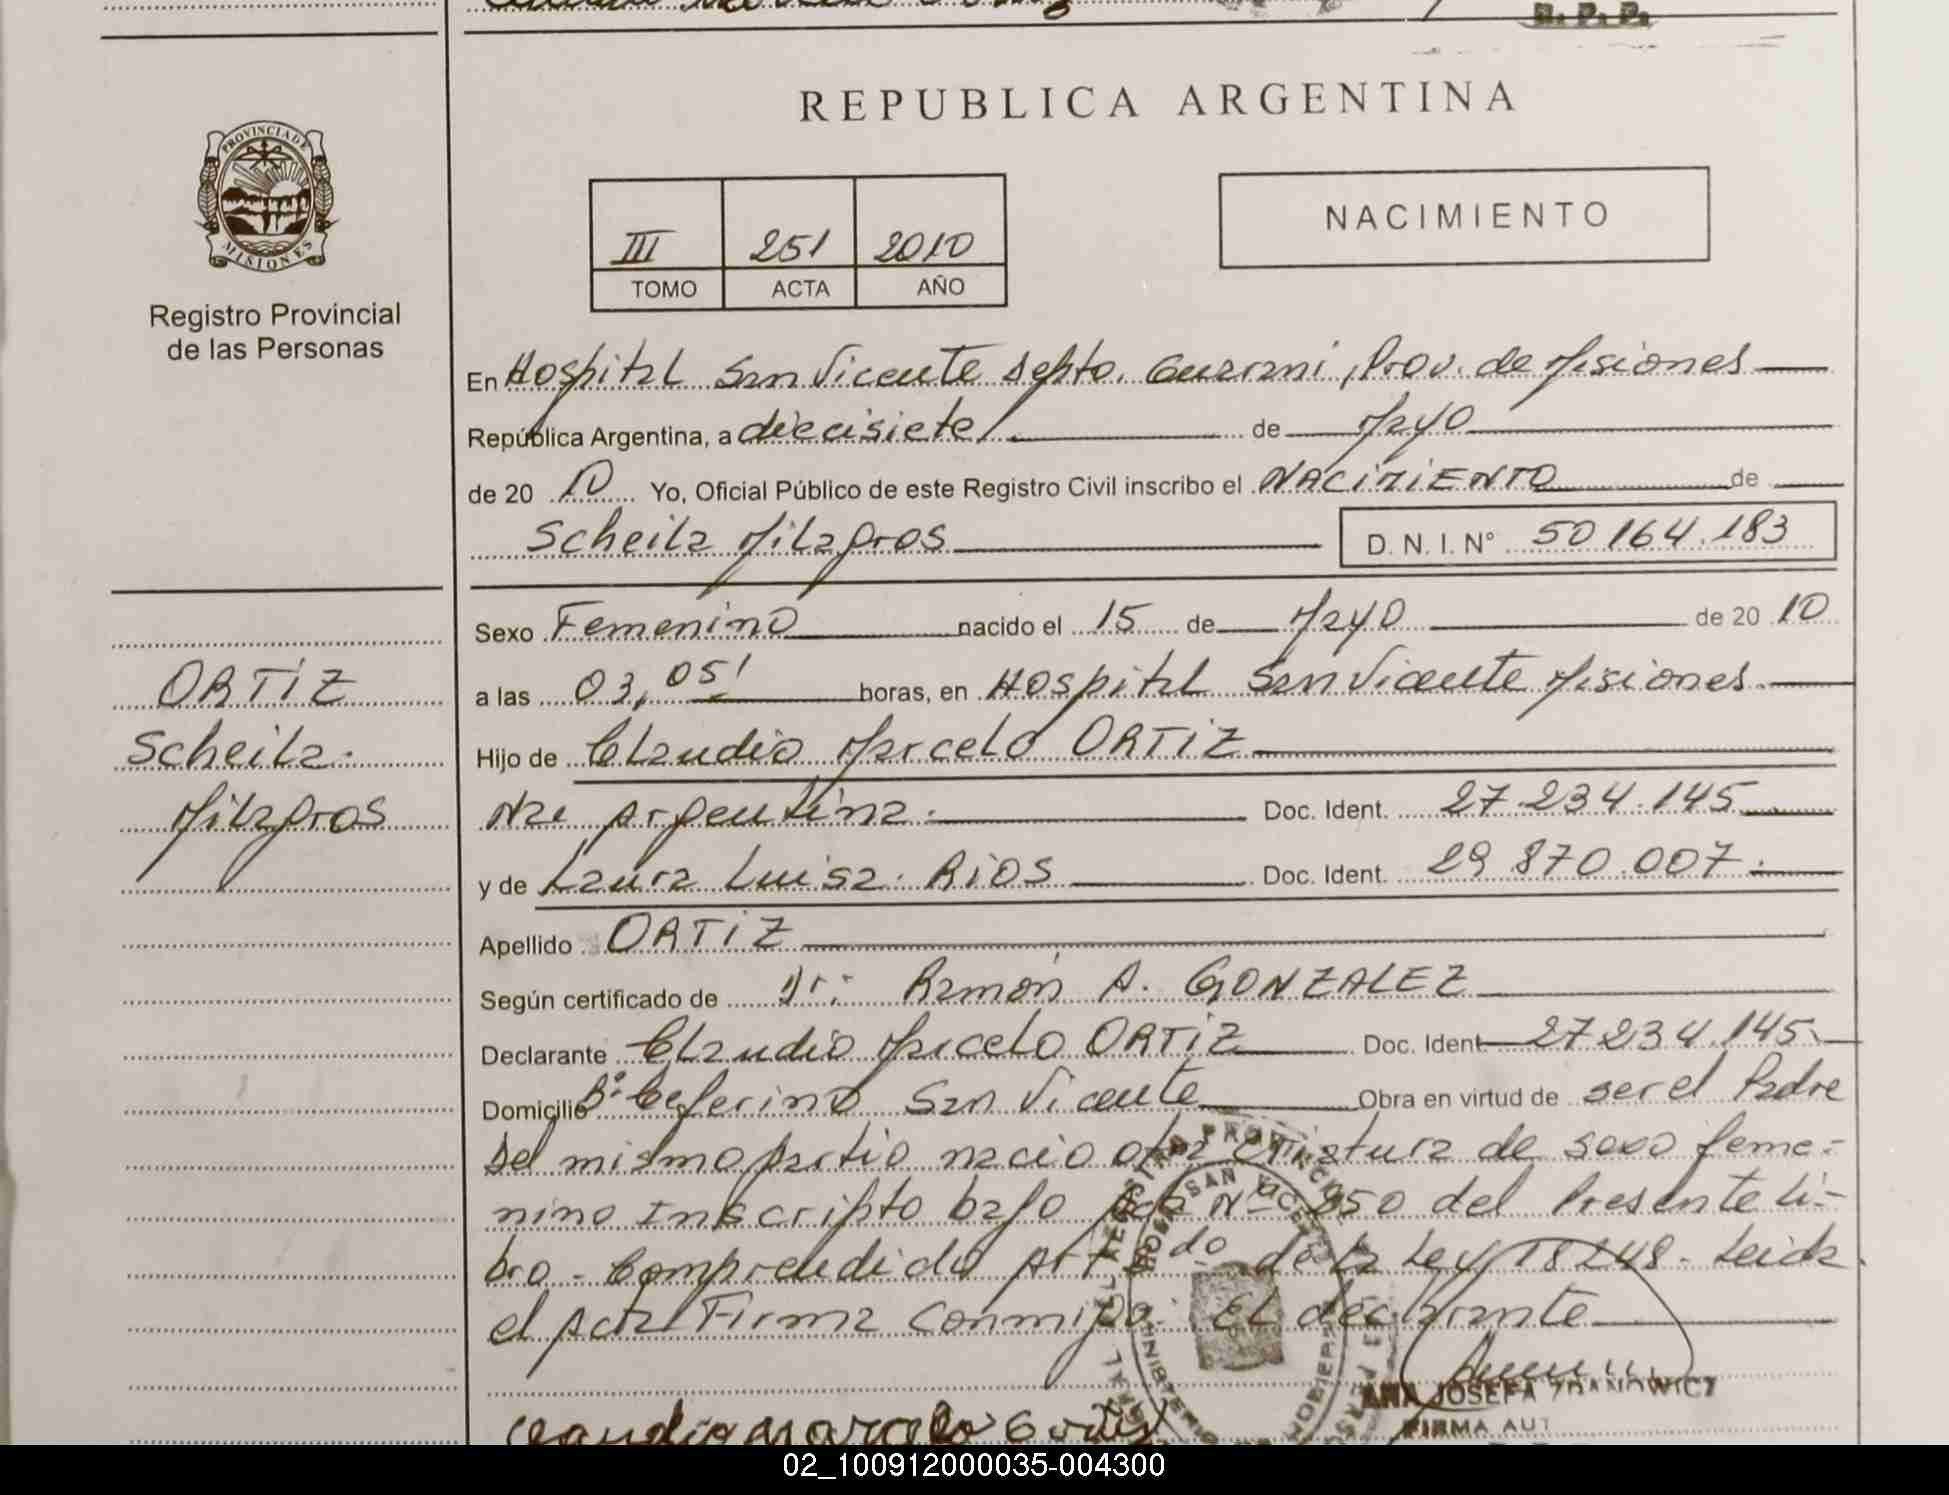 R. P. P.
PROVINCIA DE
MISIONES
Registro Provincial
de las Personas
REPUBLICA ARGENTINA
III 251 2010
TOMO ACTA AÑO
NACIMIENTO
En Hospital San Vicente Depto. Guarani, Prov. de Misiones
República Argentina, a diecisiete de Mayo
de 20 10 Yo, Oficial Público de este Registro Civil inscribo el NACIMIENTO de
Scheila Milagros D. N. I. N° 50 164.183
Sexo Femenino nacido el 15 de Mayo de 20 10
a las 03,05' horas, en Hospital San Vicente Misiones
Hijo de Claudio Marcelo ORTIZ
Nac Argentina. Doc. Ident. 27.234.145
y de Laura Luisa. RIOS Doc. Ident. 29 870.007.
Apellido ORTIZ
Según certificado de Dr: Ramón A. GONZALEZ
Declarante Claudio Marcelo ORTIZ Doc. Ident 27234.145
Domicilio B° Ceferino San Vicente Obra en virtud de ser el Padre
Del mismo partio nacio otra criatura de sexo feme-
nino Inscripto bajo Acta N° 250 del Presente Li-
bro - Comprendido Art do de la Ley 18248 - Leida
el Acta Firma Conmigo: El declarante
ORTIZ
Scheila.
Milagros
ANA JOSEFA ZDANOWICZ
FIRMA AUT
02_100912000035-004300